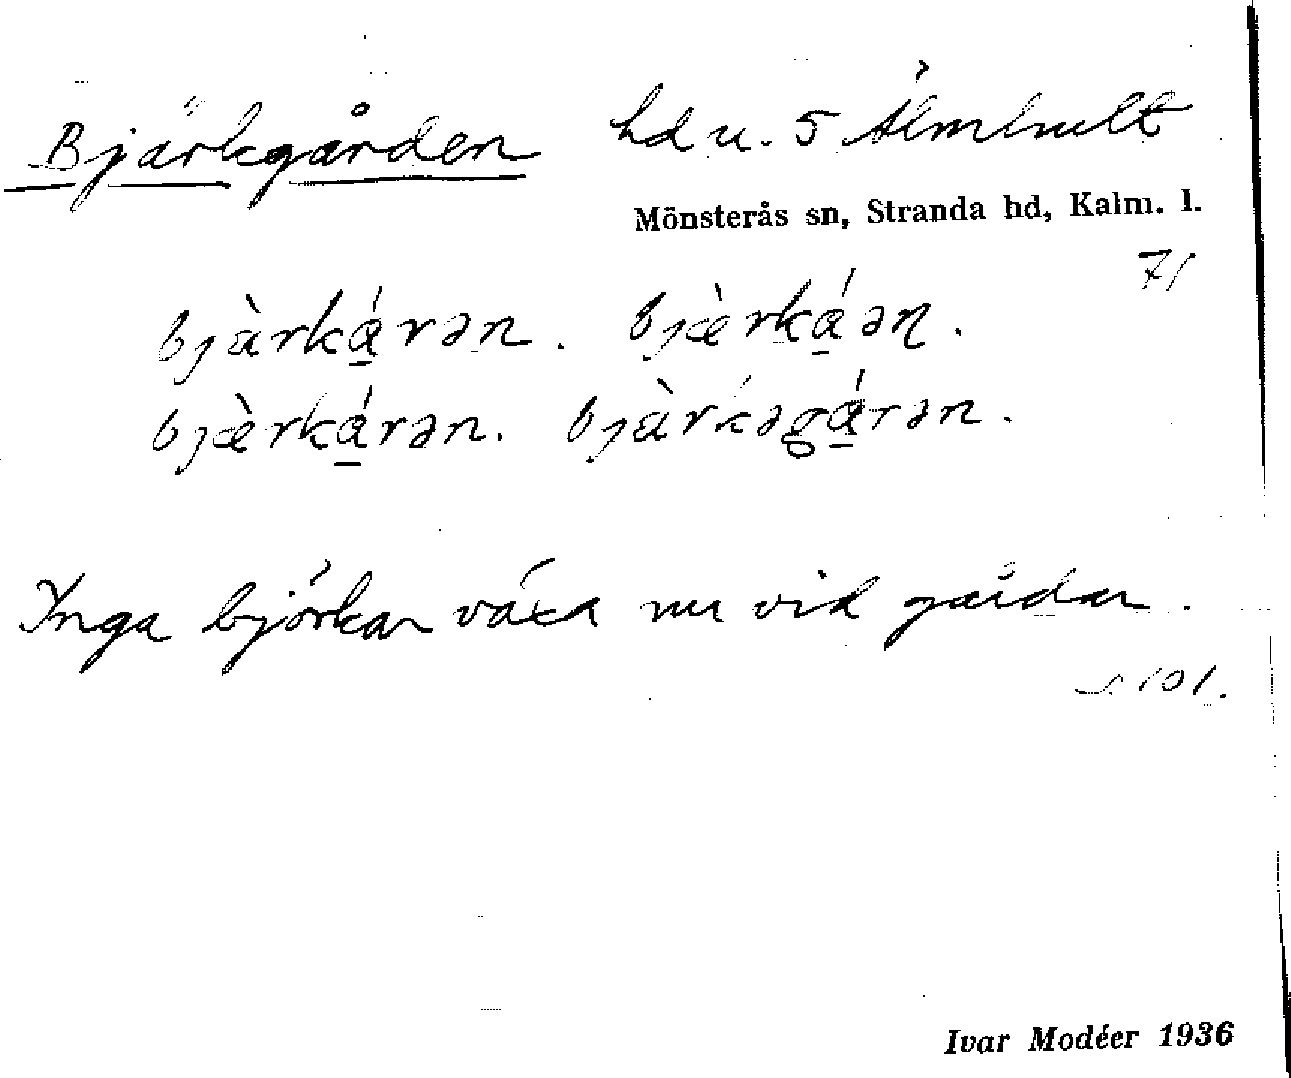 Bjärkgården hd u. 5 Älmhult
Mönsterås sn, Stranda hd, Kalm. l.
71
bjàrká̱rən. bjæ̀rká̱əɳ.
bjæ̀rká̱rən. bjàrkəgá̱rən.
Inga björkar växa nu vid gården.
s. 101.
Ivar Modéer 1936